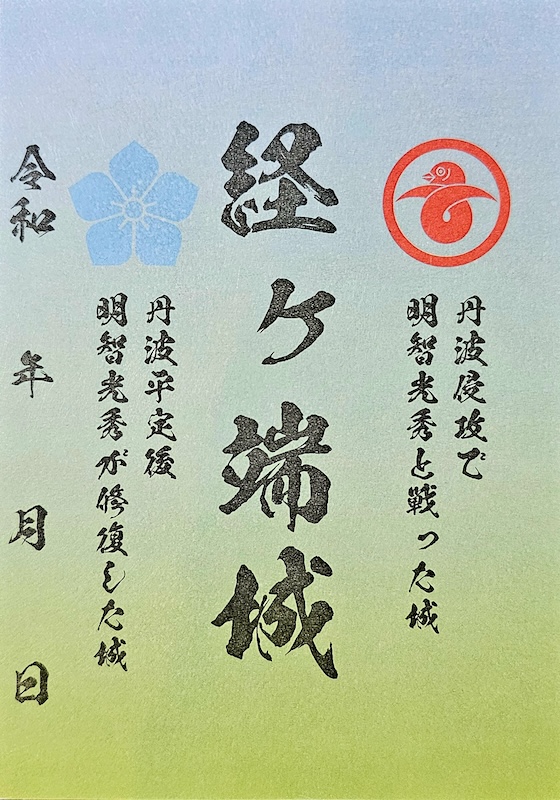 丹波侵攻で
明智光秀と戦った城
経ケ端城
丹波平定後
明智光秀が修復した城
令和 年 月 日